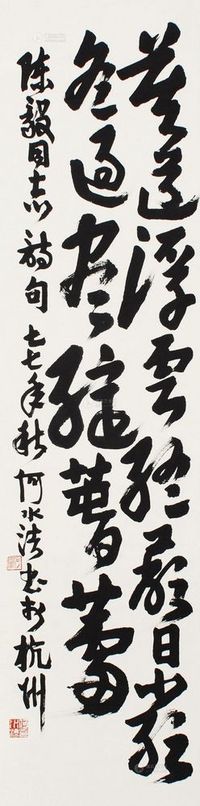 莫道浮雲終蔽日嚴
冬過尽綻春蕾
陳毅同志詩句 七七年秋 何水法书於杭州